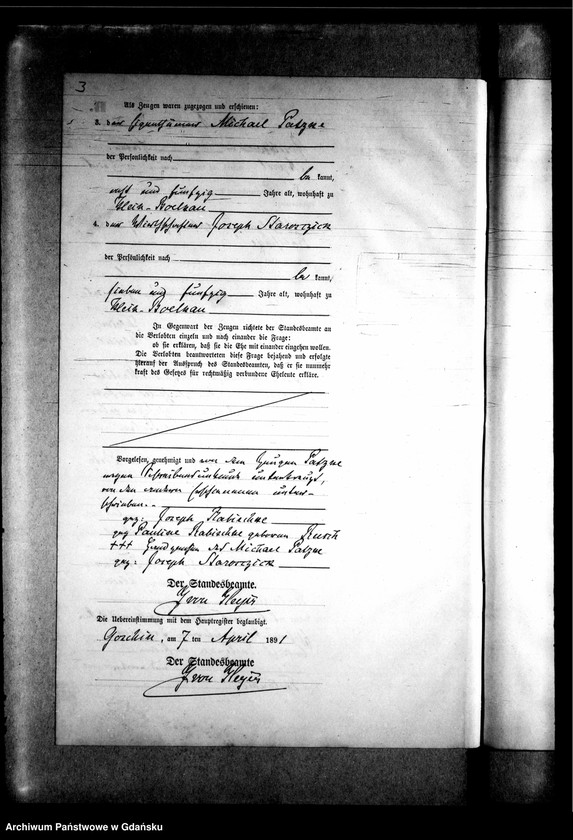 3
Als Zeugen waren zugezogen und erschienen:
3. der Eigenthümer Michael Patzne
der Persönlichkeit nach
be kannt,
acht und fünfzig Jahre alt, wohnhaft zu
Klein-Boelkau
4. der Wirthschafter Joseph Starosczick
der Persönlichkeit nach
be kannt,
sieben und fünfzig Jahre alt, wohnhaft zu
Klein-Boelkau
In Gegenwart der Zeugen richtete der Standesbeamte an
die Verlobten einzeln und nach einander die Frage:
ob sie erklären, daß sie die Ehe mit einander eingehen wollen.
Die Verlobten beantworteten diese Frage bejahend und erfolgte
hierauf der Ausspruch des Standesbeamten, daß er sie nunmehr
kraft des Gesetzes für rechtmäßig verbundene Eheleute erkläre.
Vorgelesen, genehmigt und von dem Zeugen Patzne
wegen Schreibensunkunde unterkreuzt,
von den anderen Erschienenen unter-
schrieben.
gez: Joseph Kabischke
gez Pauline Kabischke geborene
+++ Handzeichen des Michael Patzne
gez: Joseph Starosczick
Der Standesbeamte.
J von Heyer
Die Uebereinstimmung mit dem Hauptregister beglaubigt.
Goschin, am 7 ten April 1891
Der Standesbeamte
J von Heyer
Archiwum Państwowe w Gdańsku